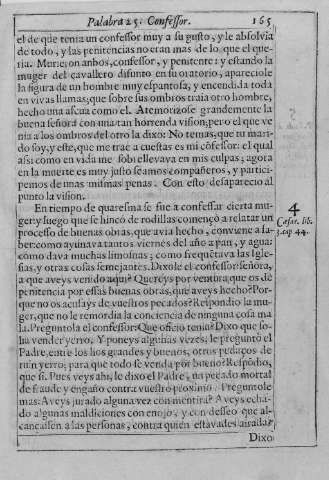 Palabra 25. Confessor. 165
el de que tenia un confessor muy a su gusto, y le absolvia
de todo, y las penitencias no eran mas de lo que el que-
ria. Murieron anbos, confessor, y penitente: y estando la
muger del cavallero difunto en su oratorio, apareciole
la figura de un hombre muy espantosa, y encendida toda
en vivas llamas; que sobre sus ombros traia otro hombre,
hecho una ascua como el. Atemorizose grandemente la
buena señora con una tan horrenda vision, pero el que ve
nia a los ombros del otro la dixo: No temas, que tu mari-
do soy, y este, que me trae a cuestas es mi cõfessor: el qual
assi como en vida me sobrellevava en mis culpas; agora
en la muerte es muy justo seamos compañeros, y partici-
pemos de unas mismas penas. Con esto desaparecio al
punto la vision.
En tiempo de quaresma se fue a confessar cierta mu-
ger: y luego que se hincó de rodillas començó a relatar un
processo de buenas obras, que avia hecho, conviene a sa-
ber: como ayunava tantos viernes del año a pan, y agua:
como dava muchas limosnas; como frequẽtava las Igle-
sias, y otras cosas semejantes. Dixole el confessor: señora,
a que aveys venido aqui? Quereys por ventura que os dé
penitencia por essas buenas obras, que aveys hecho? Por-
que no os acusays de vuestros pecados? Respondio la mu-
ger, que no le remordia la conciencia de ninguna cosa ma
la. Preguntola el confessor: Que oficio tenia? Dixo que so-
lia vender yerro. Y poneys algunas vezes, le preguntó el
Padre, entre los lios grandes y buenos, otros pedaços de
ruin yerro; para que todo se venda por bueno? Respõdio,
que si. Pues veys ahi, le dixo el Padre, un pecado mortal
de fraude y engaño contra vuestro proximo. Preguntole
mas: Aveys jurado alguna vez con mentira? Aveys echa-
do algunas maldiciones con enojo, y con desseo que al-
cancassen a las personas, contra quien estavades airada?
Dixo
4
Cesar. lib.
3. cap 44.